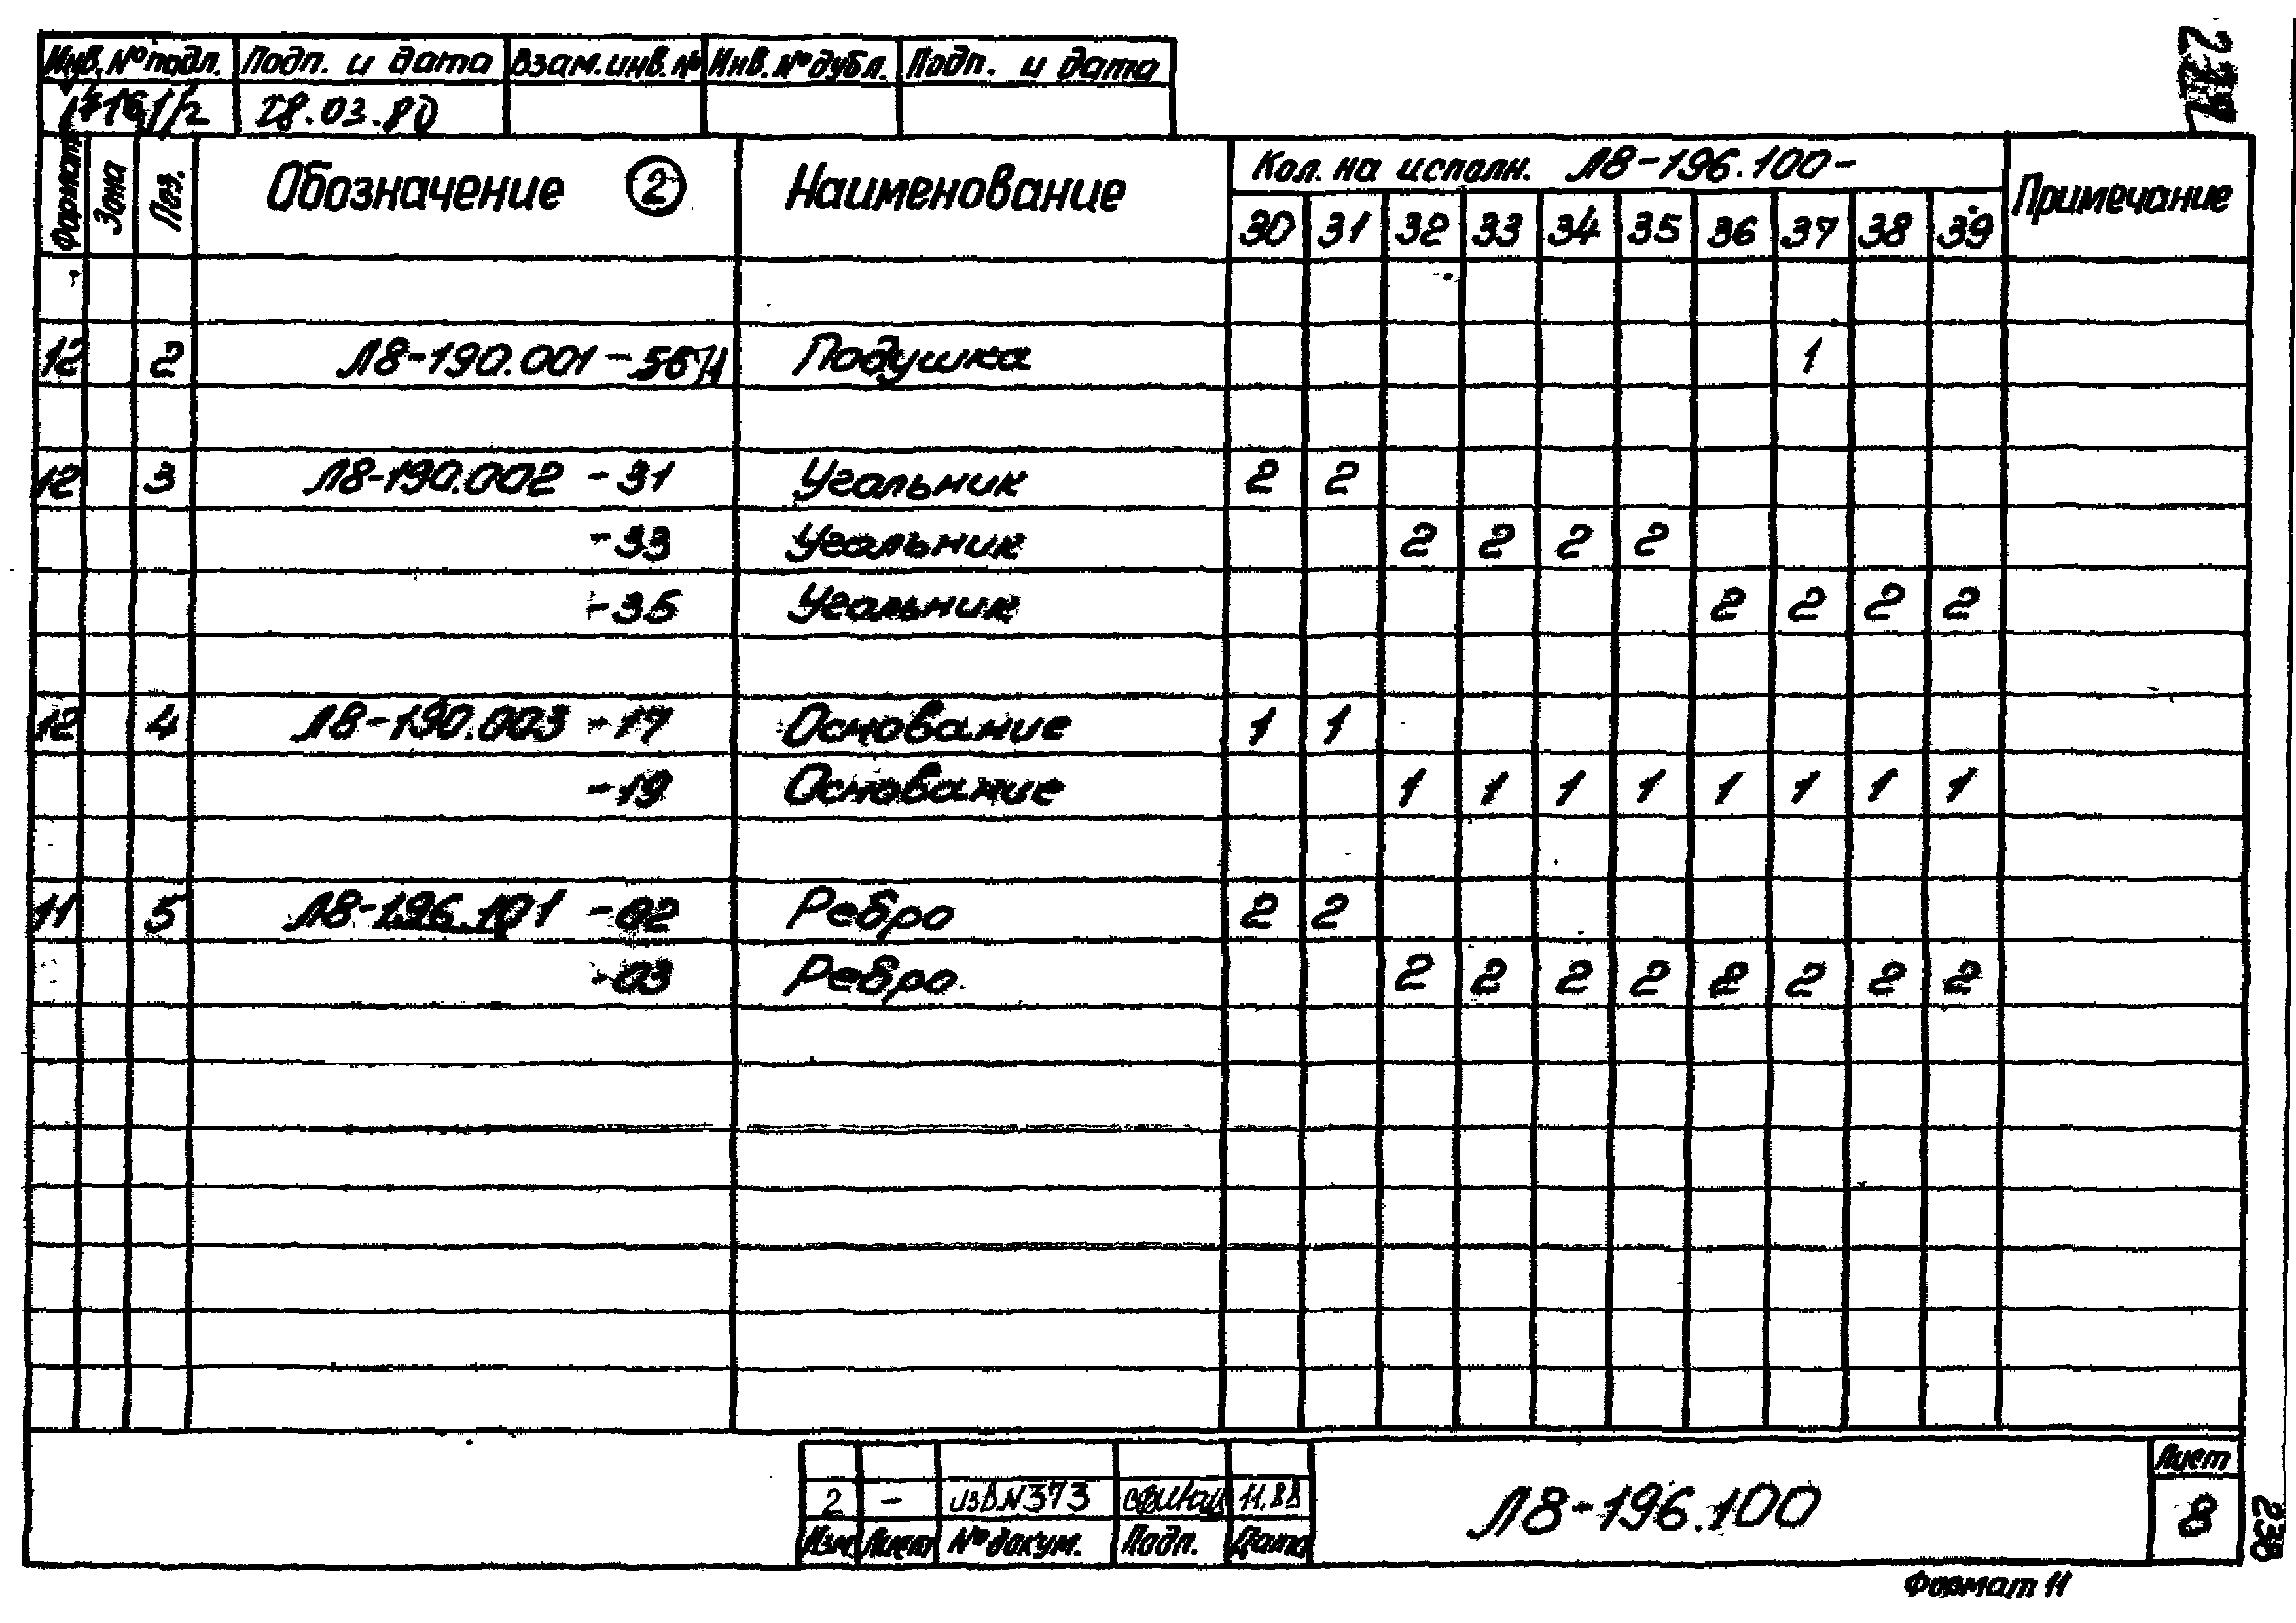 Инв. № подл. Подп. и дата Взам. инв. № Инв. № дубл. Подп. и дата
28.03.80
Формат Зона Поз. Обозначение 2 Наименование Кол. на исполн. Л8-196.100- Примечание
30 31 32 33 34 35 36 37 38 39
12 2 Л8-190.001 - Подушка 1
12 3 Л8-190.002 - 31 Угольник 2 2
- 33 Угольник 2 2 2 2
- 35 Угольник 2 2 2 2
12 4 Л8-190.003 - 17 Основание 1 1
- 19 Основание 1 1 1 1 1 1 1 1
11 5 Л8-196.101 - 02 Ребро 2 2
- 03 Ребро 2 2 2 2 2 2 2 2
2 - изв.N373 11.88
Изм. Лист № докум. Подп. Дата
Л8-196.100
Лист
8
Формат 11